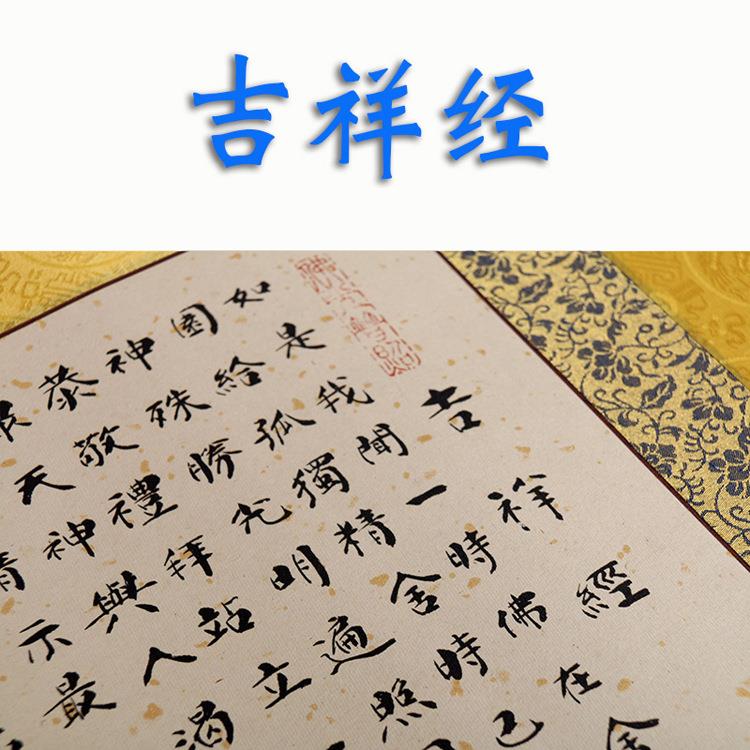 吉祥经
吉祥經
如是我聞一時佛在舍
園給孤獨精舍時已
神殊勝光明遍照
恭敬禮拜站立
天神與人渴
示最